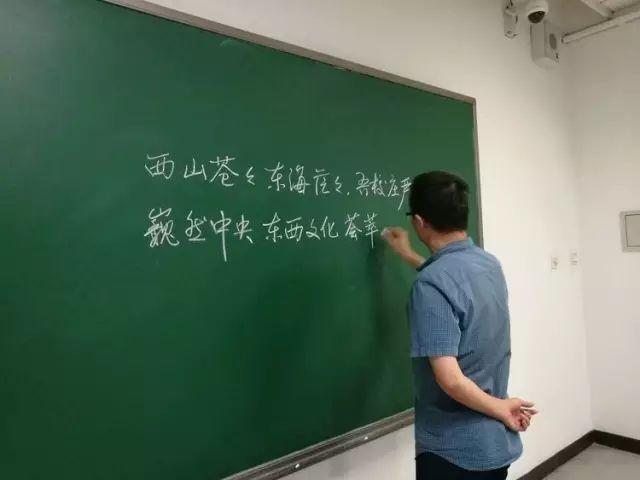 西山苍々东海茫々,吾校庄严
巍然中央 东西文化荟萃